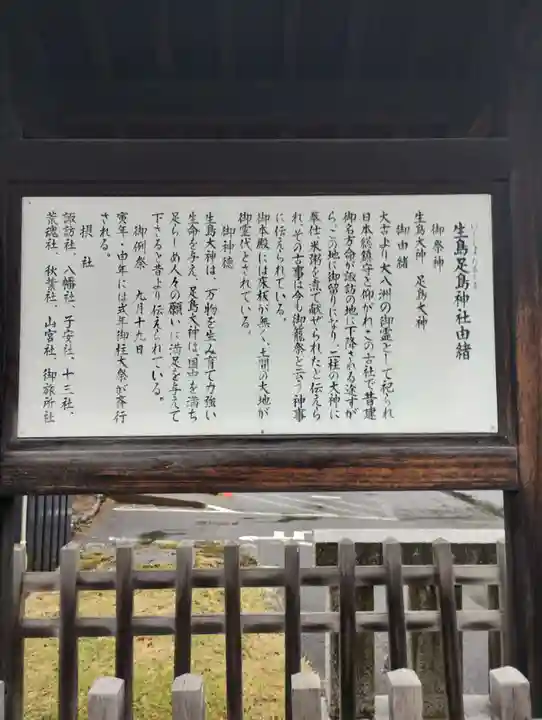 生島足島神社由緒
御祭神
生島大神 足島大神
御由緒
太古より大八洲の御霊として祀られ
日本総鎮守と仰がれ、この古社で昔建
御名方命が諏訪の地に下降される途すが
ら、この地に御留りになり、二柱の大神に
奉仕し米粥を煮て献ぜられたと伝えら
れ、その古事は今も御籠祭と云う神事
に伝えられている。
御本殿には床板が無く、土間の大地が
御霊代とされている。
御神徳
生島大神は、万物を生み育て力強い
生命を与え、足島大神は国中を満ち
足らしめ人々の願いに満足を与えて
下さると昔より伝えられている。
御例祭 九月十九日
寅年・申年には式年御柱大祭が斎行
される。
摂社
諏訪社、八幡社、子安社、十三社、
荒魂社、秋葉社、山宮社、御旅所社